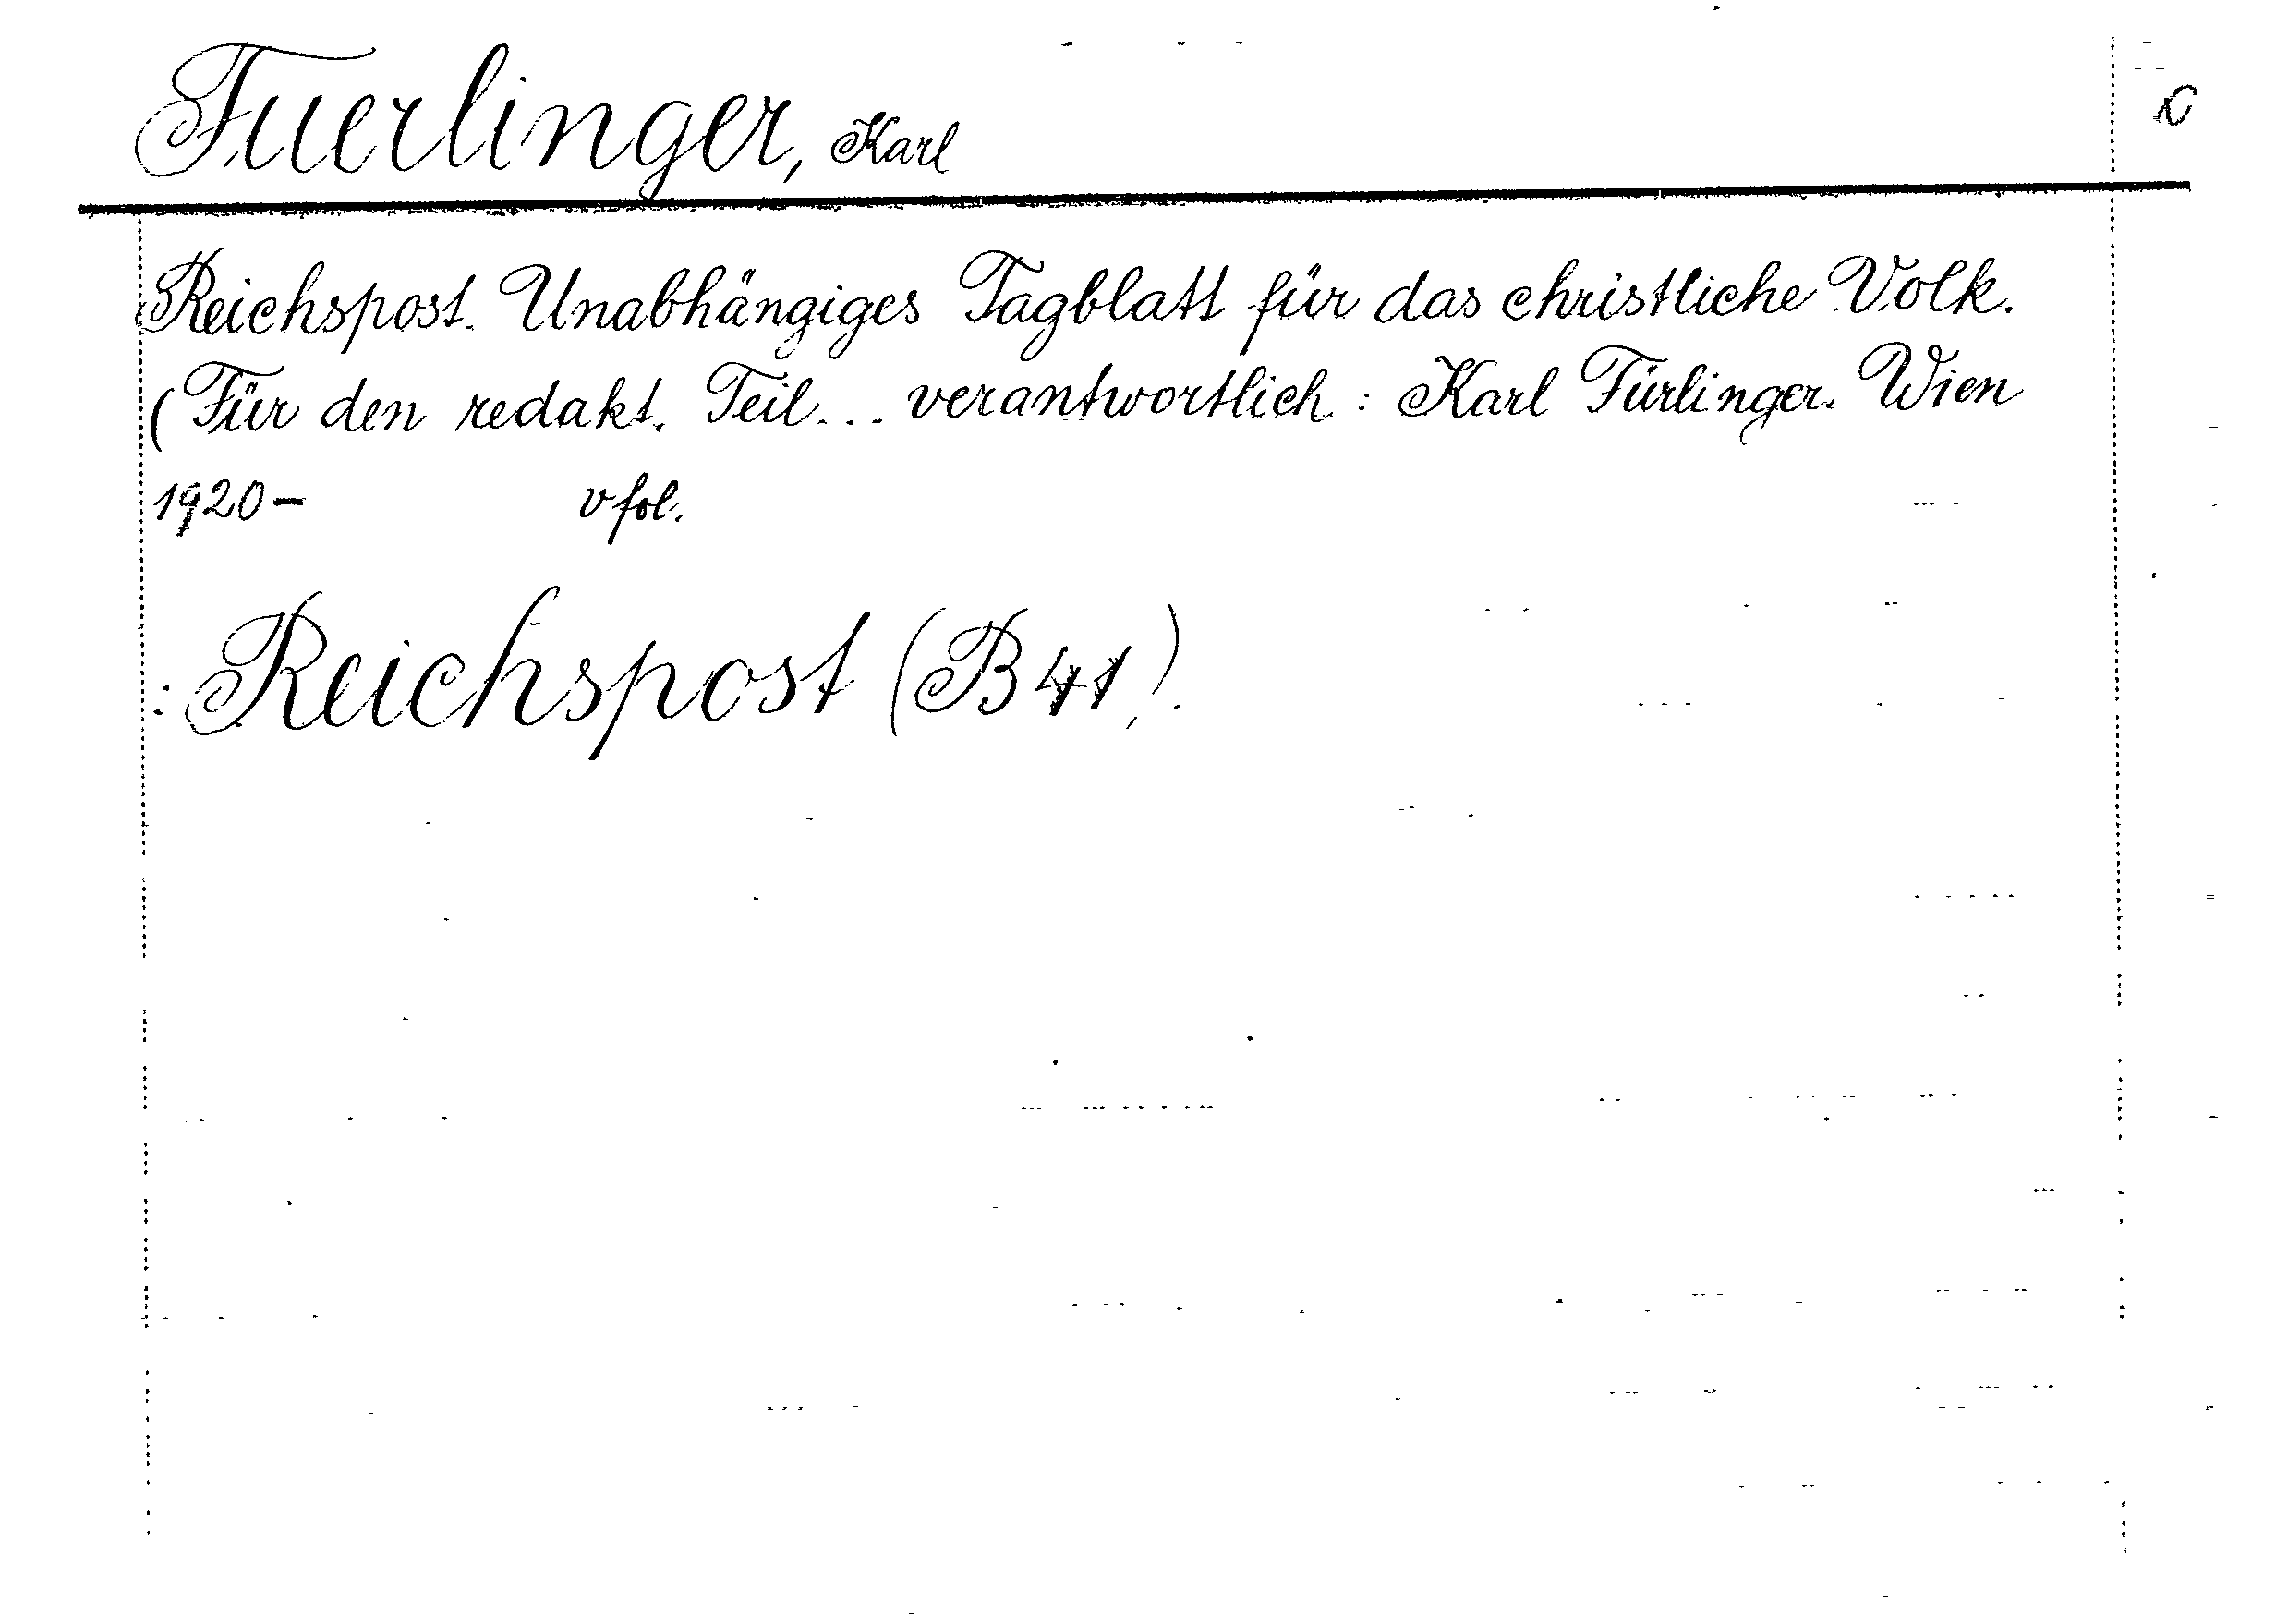 Fuerlinger, Karl
Reichspost. Unabhängiges Tagblatt für das christliche Volk.
(Für den redakt. Teil... verantwortlich: Karl Fürlinger. Wien
1920- v fol.
: Reichspost (B 41,).